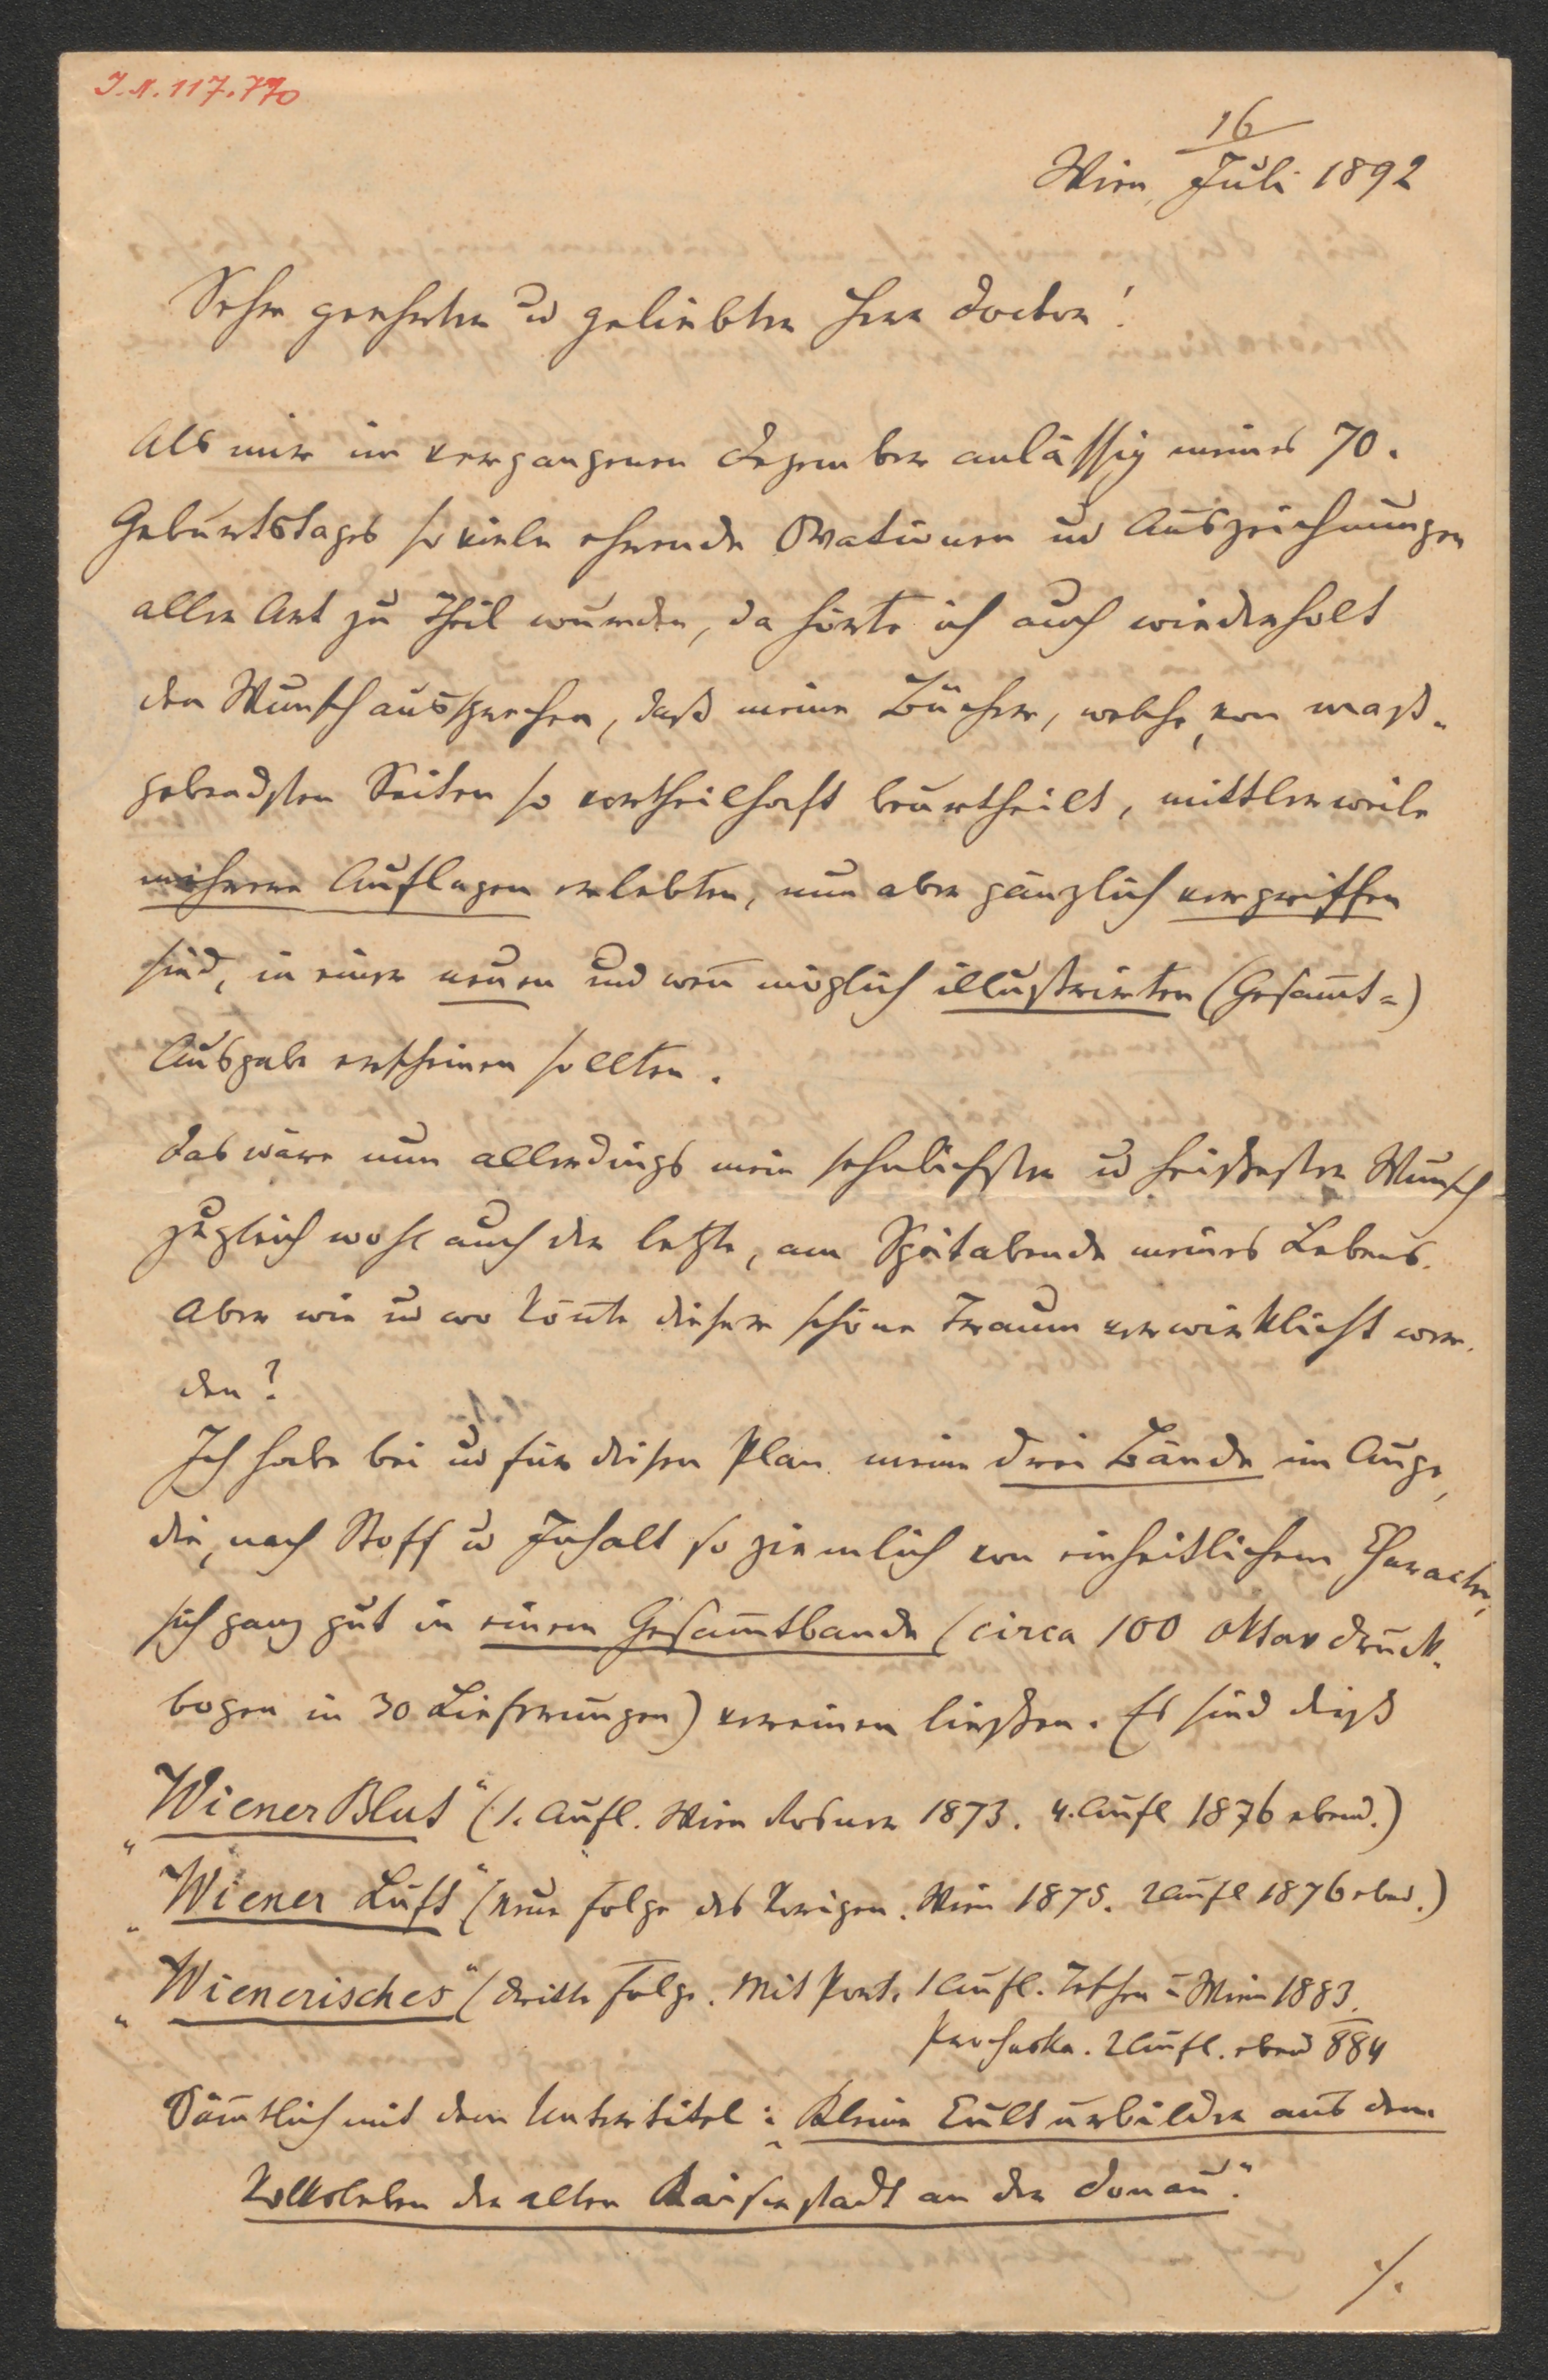 I.N. 117.770
16
Wien, Juli 1892
Sehr geehrter u geliebter Herr Doctor!
Als mir im vergangenen Dezember anläßig meines 70.
Geburtstages so viele ehrende Ovationen und Auszeichnungen
aller Art zu Theil wurden, da hörte ich auch wiederholt
den Wunsch aussprechen, daß meine Bücher, welche, von maß-
gebendsten Seiten so vortheilhaft beurtheilt, mittlerweile
mehrere Auflagen erlebten, nun aber gänzlich vergriffen
sind, in einer neuen und wen̅ möglich illustrirten (Gesam̅t-)
Ausgabe erscheinen sollten.
Das wäre nun allerdings mein sehnlichster u heißester Wunsch
zugleich wohl auch der letzte, am Spätabende meines Lebens.
Aber wie u wo kön̅te dieser schöne Traum verwirklicht wer-
den?
Ich habe bei und für diesen Plan meine drei Bände im Auge,
die, nach Stoff u Inhalt so ziemlich von einheitlichem Character,
sich ganz gut in einem Gesam̅tbande (circa 100 Oktavdruck-
bogen in 30 Lieferungen) vereinen ließen. Es sind dieß
„Wiener Blut“ (1. Aufl. Wien Rosner 1873. 4. Aufl 1876 ebend.)
„Wiener Luft“ (Neue Folge des Vorigen. Wien 1875. 2 Aufl 1876 ebend.)
„Wienerisches“ (Dritte Folge. Mit Port. 1 Aufl. Teschen u Wien 1883.
Prochaska. 2 Aufl. ebend 884
Säm̅tlich mit dem Untertitel: „Kleine Culturbilder aus dem
Volksleben der alten Kaiserstadt an der Donau“.
./.